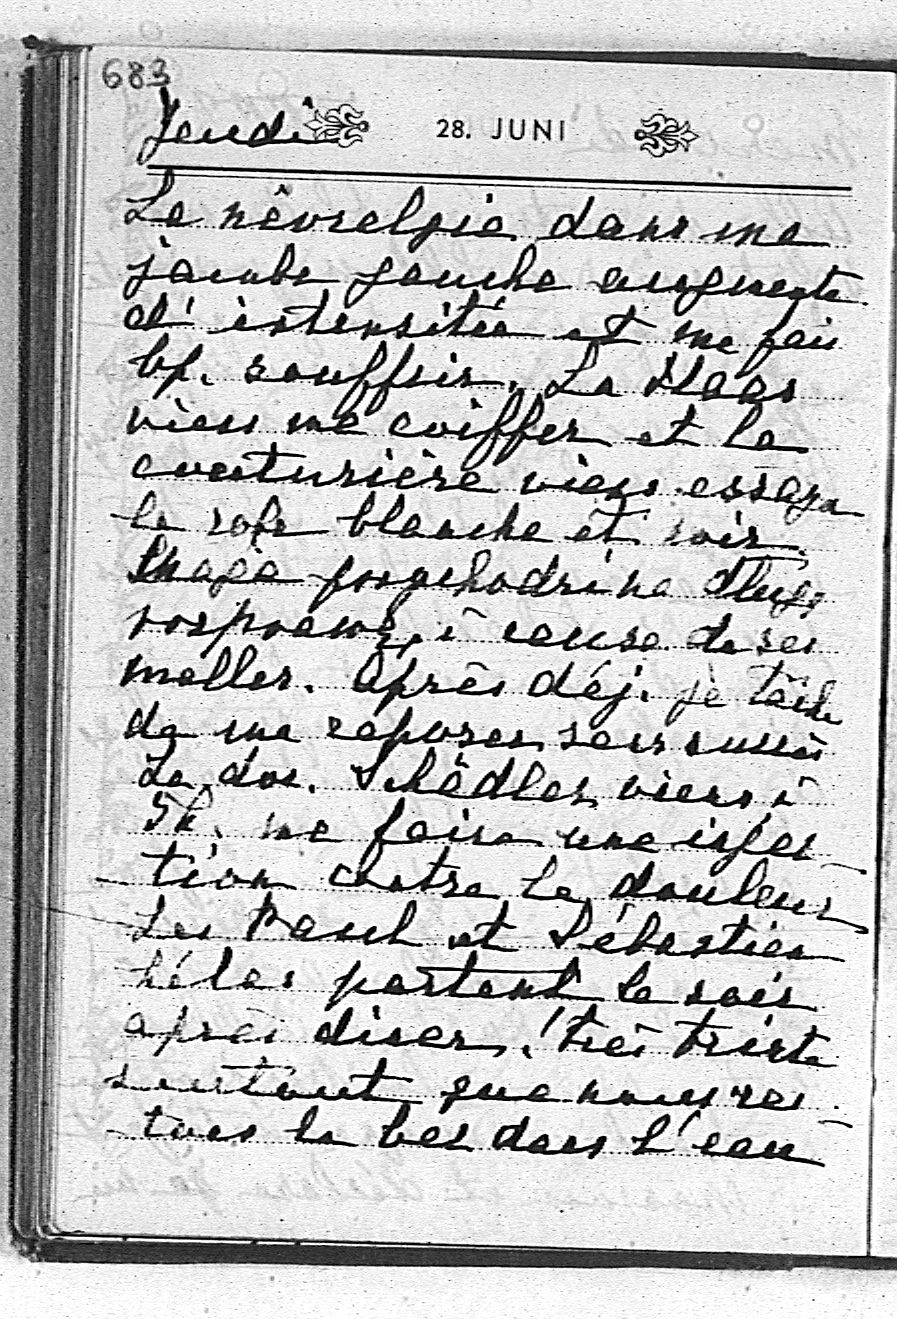 683
Jeudi 28. JUNI
La névralgie dans ma
jambe gauche augmente
d'intensitée et me fais
bp. souffrir. La Haas
viens me coiffer et la
couturière viens essayer
la robe blanche et noir.
à cause de ses
malles. Après déj. je tâche
de me reposer sans succès
La dos. Schädler viens à
5h. me faire une injec
tion contre la douleur
Les Rauch et Sébastien
hélas partent le soir
après diner! très triste
surtout que nous res
tons le bec dans l'eau